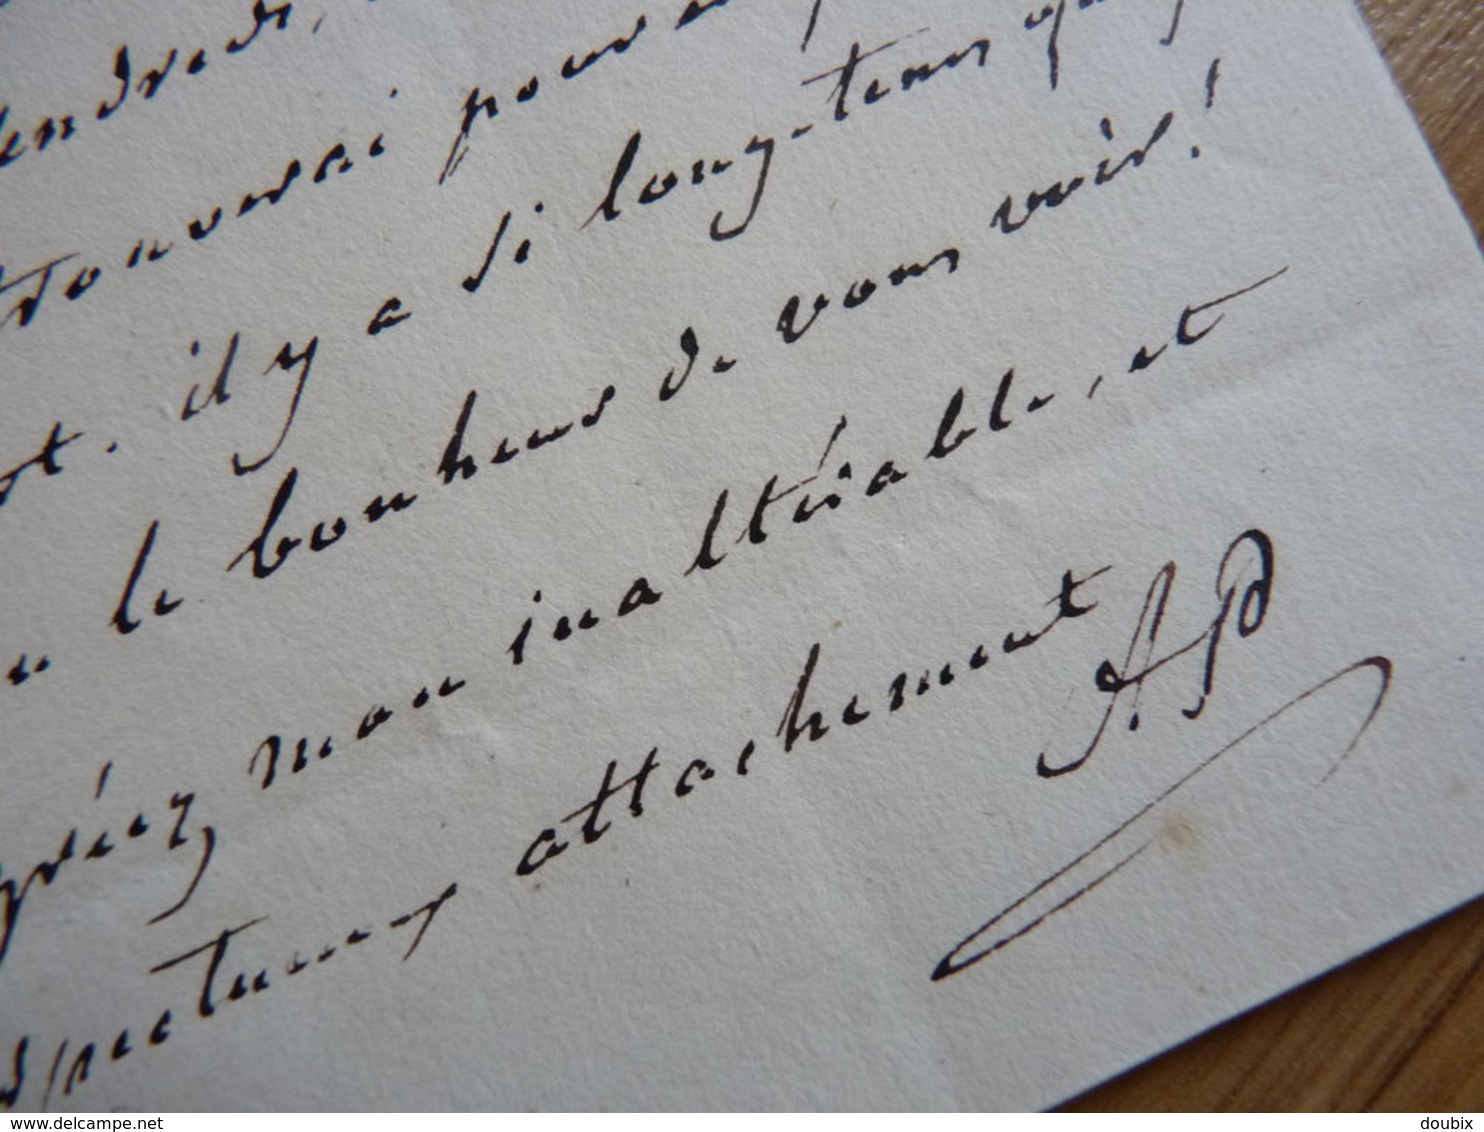 vendredi,
trouverai pour
il y a si long-tems que
le bonheur de vous voir!
agréez, mon inaltérable, et
respectueux attachement
AP
delcampe.net
doubix